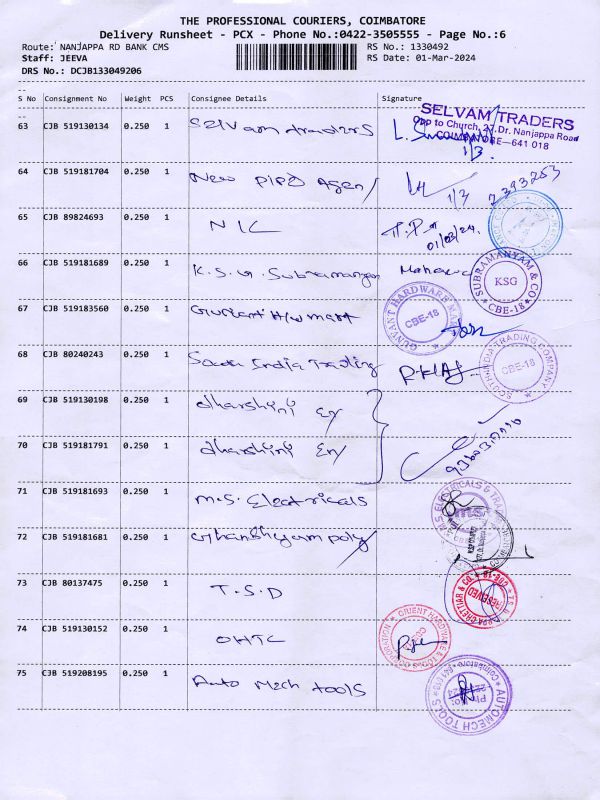 THE PROFESSIONAL COURIERS, COIMBATORE
Delivery Runsheet - PCX - Phone No.:0422-3505555 - Page No.:6
Route: NANJAPPA RD BANK CMS RS No.: 1330492
Staff: JEEVA RS Date: 01-Mar-2024
DRS No.: DCJB133049206
S No Consignment No Weight PCS Consignee Details Signature
SELVAM TRADERS
Opp to Church, 27, Dr. Nanjappa Road
COIMBATORE-641 018
63 CJB 519130134 0.250 1 Selvam traders
1/3
64 CJB 519181704 0.250 1 New Pipe Agency 1/3
65 CJB 89824693 0.250 1 NIC
01/03/24.
66 CJB 519181689 0.250 1 K.S.G. Subramanyan
SUBRAMANYAM & CO
KSG
CBE-18
67 CJB 519183560 0.250 1 Gunvant H/w mart
GUNVANT HARDWARE MART
CBE-18
68 CJB 80240243 0.250 1 South India Trading
SOUTH INDIA TRADING COMPANY
CBE-18
69 CJB 519130198 0.250 1 dharshini Ey
70 CJB 519181791 0.250 1 dharshini Ey
71 CJB 519181693 0.250 1 M.S. Electricals
M.S. ELECTRICALS &
72 CJB 519181681 0.250 1 Ghanshyam poly
73 CJB 80137475 0.250 1 T.S.D
CHETTIAR & CO.
RECEIVED
74 CJB 519130152 0.250 1 OHTC
ORIENT HARDWARE & TOOLS CORPORATION
75 CJB 519208195 0.250 1 Auto Mech tools
AUTOMECH TOOLS
Coimbatore